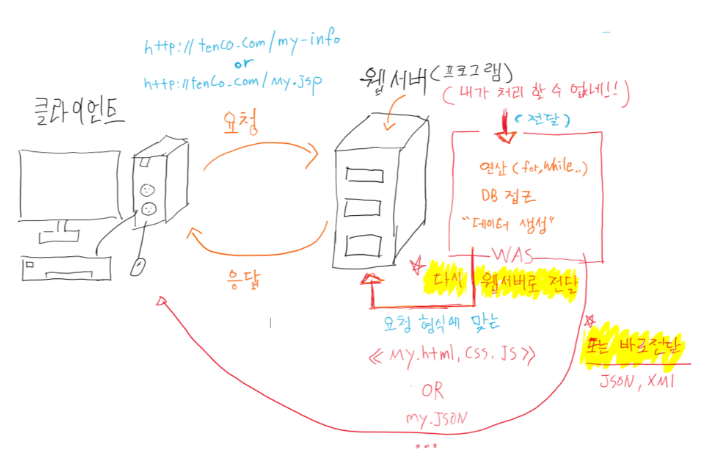 http://tenco.com/my-info
or
http://tenco.com/my.jsp
클라이언트
요청
응답
웹서버(프로그램)
(내가 처리 할 수 없네!!)
(전달)
연산(for,while..)
DB 접근
"데이터 생성"
WAS
다시 웹서버로 전달
요청 형식에 맞는
<< My.html, css. Js >>
OR
my.JSON
...
또는 바로전달
JSON, XMl